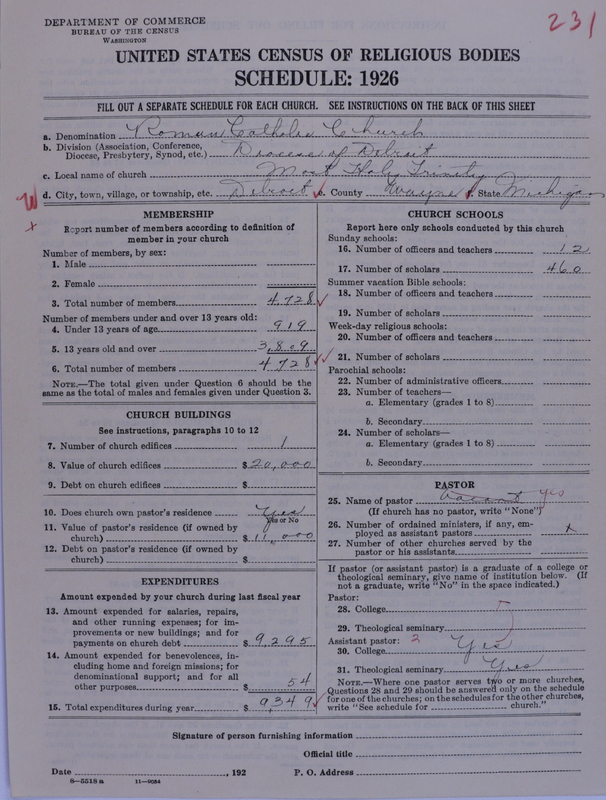 DEPARTMENT OF COMMERCE
BUREAU OF THE CENSUS
WASHINGTON
231
UNITED STATES CENSUS OF RELIGIOUS BODIES
SCHEDULE: 1926
FILL OUT A SEPARATE SCHEDULE FOR EACH CHURCH. SEE INSTRUCTIONS ON THE BACK OF THIS SHEET
a. Denomination Roman Catholic Church
b. Division (Association, Conference, Diocese, Presbytery, Synod, etc.) Diocese of Detroit
c. Local name of church Most Holy Trinity
d. City, town, village, or township, etc. Detroit e. County Wayne f. State Michigan
MEMBERSHIP
Report number of members according to definition of
member in your church
Number of members, by sex:
1. Male
2. Female
3. Total number of members 4,728
Number of members under and over 13 years old:
4. Under 13 years of age 919
5. 13 years old and over 3,809
6. Total number of members 4728
NOTE.—The total given under Question 6 should be
same as the total of males and females given under Question 3.
CHURCH BUILDINGS
See instructions, paragraphs 10 to 12
7. Number of church edifices 1
8. Value of church edifices $20,000
9. Debt on church edifices $
10. Does church own pastor's residence Yes
Yes or No
11. Value of pastor's residence (if owned by
church) $11,000
12. Debt on pastor's residence (if owned by
church) $
EXPENDITURES
Amount expended by your church during last fiscal year
13. Amount expended for salaries, repairs,
and other running expenses; for im-
provements or new buildings; and for
payments on church debt $9,295
14. Amount expended for benevolences, in-
cluding home and foreign missions; for
denominational support; and for all
other purposes $54
15. Total expenditures during year $9,349
CHURCH SCHOOLS
Report here only schools conducted by this church
Sunday schools:
16. Number of officers and teachers 12
17. Number of scholars 460
Summer vacation Bible schools:
18. Number of officers and teachers
19. Number of scholars
Week-day religious schools:
20. Number of officers and teachers
21. Number of scholars
Parochial schools:
22. Number of administrative officers
23. Number of teachers—
a. Elementary (grades 1 to 8)
b. Secondary
24. Number of scholars—
a. Elementary (grades 1 to 8)
b. Secondary
PASTOR
25. Name of pastor Vacant yes
(If church has no pastor, write "None")
26. Number of ordained ministers, if any, em-
ployed as assistant pastors x
27. Number of other churches served by the
pastor or his assistants
If pastor (or assistant pastor) is a graduate of a college or
theological seminary, give name of institution below. (If
not a graduate, write "No" in the space indicated.)
Pastor:
28. College
29. Theological seminary
Assistant pastor: 2
30. College Yes
31. Theological seminary Yes
NOTE.—Where one pastor serves two or more churches,
Questions 28 and 29 should be answered only on the schedule
for one of the churches; on the schedules for the other churches,
write "See schedule for church."
Signature of person furnishing information
Official title
Date , 192 P. O. Address
8—5518 a 11—9034